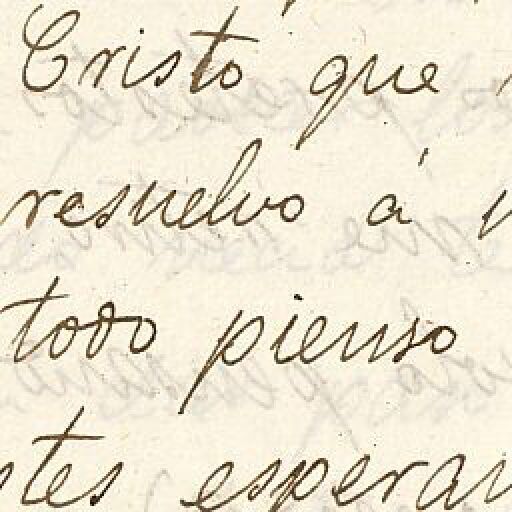 Cristo que
resuelvo á
todo pienso
stes esperan